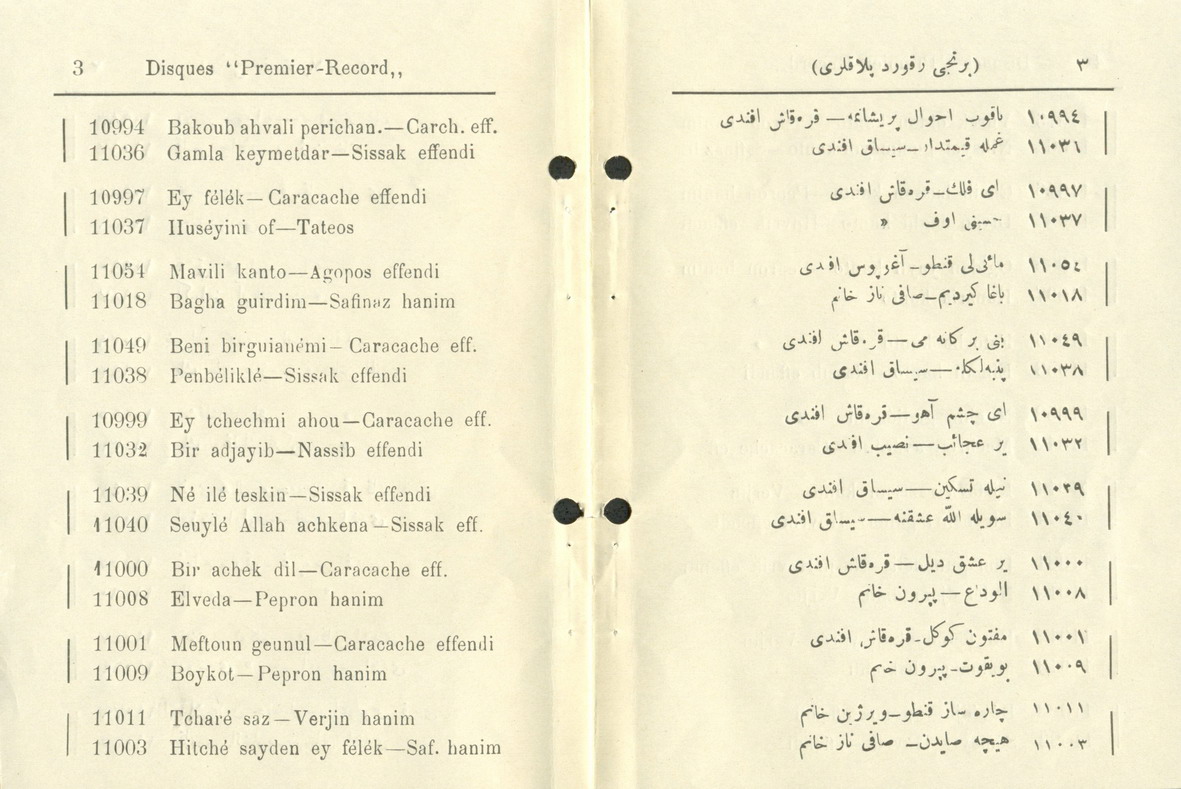 3 Disques “Premier-Record,,
10994 Bakoub ahvali perichan.—Carch. eff.
11036 Gamla keymetdar—Sissak effendi
10997 Ey félék—Caracache effendi
11037 Huséyini of—Tateos
11054 Mavili kanto—Agopos effendi
11018 Bagha guirdim—Safinaz hanim
11049 Beni birguianémi—Caracache eff.
11038 Penbéliklé—Sissak effendi
10999 Ey tchechmi ahou—Caracache eff.
11032 Bir adjayib—Nassib effendi
11039 Né ilé teskin—Sissak effendi
11040 Seuylé Allah achkena—Sissak eff.
11000 Bir achek dil—Caracache eff.
11008 Elveda—Pepron hanim
11001 Meftoun geunul—Caracache effendi
11009 Boykot—Pepron hanim
11011 Tcharé saz—Verjin hanim
11003 Hitché sayden ey félék—Saf. hanim
٣ (برنجی رقورد پلاقلری)
١٠٩٩٤ باقوب احوال پریشانمه—قره‌قاش افندی
١١٠٣٦ غمله قیمتدار—سیساق افندی
١٠٩٩٧ ای فلك—قره‌قاش افندی
١١٠٣٧ حسینی اوف »
١١٠٥٤ مائی‌لی قنطو—آغوپوس افندی
١١٠١٨ باغا کیردیم—صافی ناز خانم
١١٠٤٩ بنی بر کانه می—قره‌قاش افندی
١١٠٣٨ پنبه‌لکله—سیساق افندی
١٠٩٩٩ ای چشم آهو—قره‌قاش افندی
١١٠٣٢ بر عجائب—نصیب افندی
١١٠٣٩ نیله تسکین—سیساق افندی
١١٠٤٠ سویله الله عشقنه—سیساق افندی
١١٠٠٠ بر عشق دیل—قره‌قاش افندی
١١٠٠٨ الوداع—پپرون خانم
١١٠٠١ مفتون کوکل—قره‌قاش افندی
١١٠٠٩ بویقوت—پپرون خانم
١١٠١١ چاره ساز قنطو—ویرژین خانم
١١٠٠٣ هیچه صایدن—صافی ناز خانم